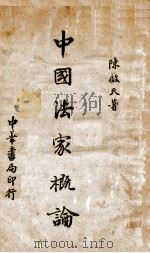 陳啟天著
中國法家概論
中華書局印行
mtoou.info